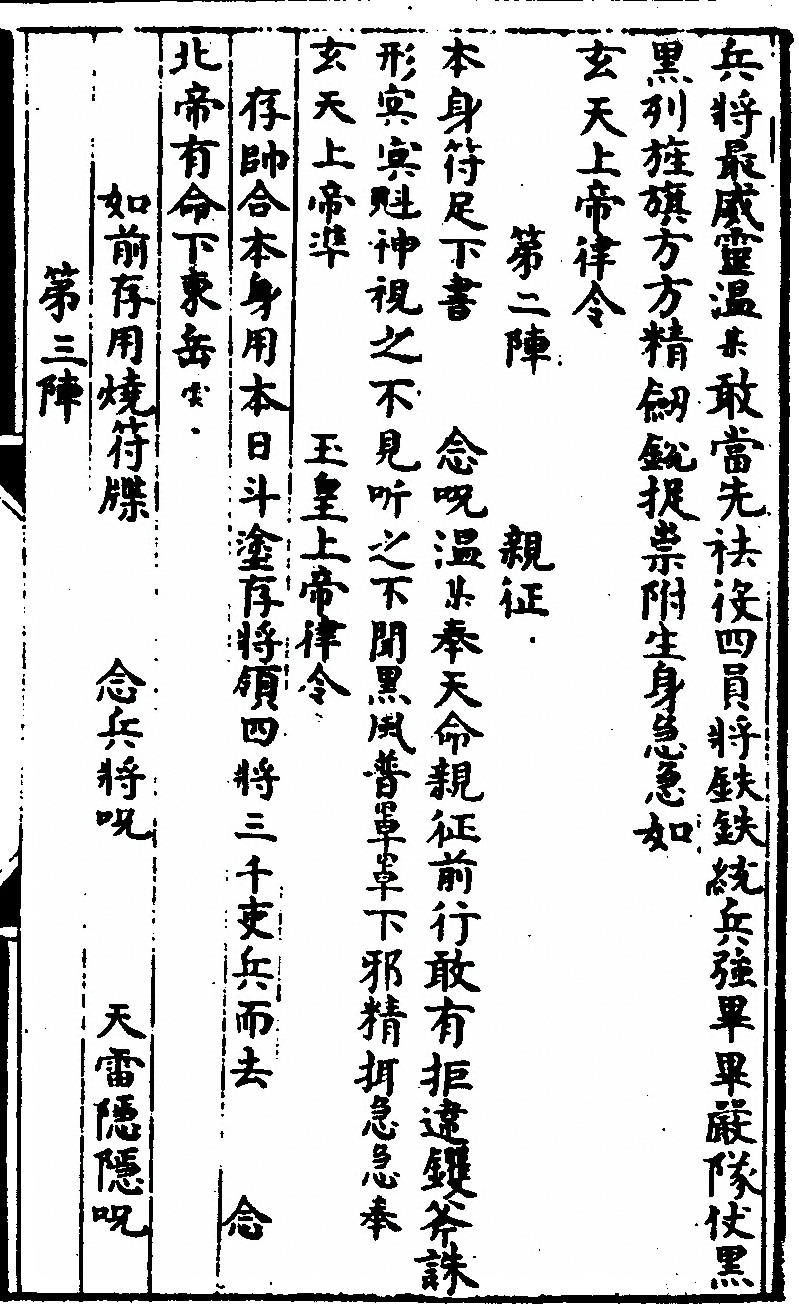 兵將最威靈溫某敢當先祛役四員將鉄鉄統兵強畢畢嚴隊伏黑
黑列旌旗方方精劒鋭捉祟附生身急急如
玄天上帝律令
第二陣 親征
本身符足下書 念呪溫某奉天命親征前行敢有拒違鑊斧誅
形冥冥魁神視之不見听之不聞黑風普罩罩下邪精拑急急奉
玄天上帝準 玉皇上帝律令
存帥合本身用本日斗塗存將領四將三千吏兵而去 念
北帝有命下東岳云
如前存用燒符牒 念兵將呪 天雷隱隱呪
第三陣